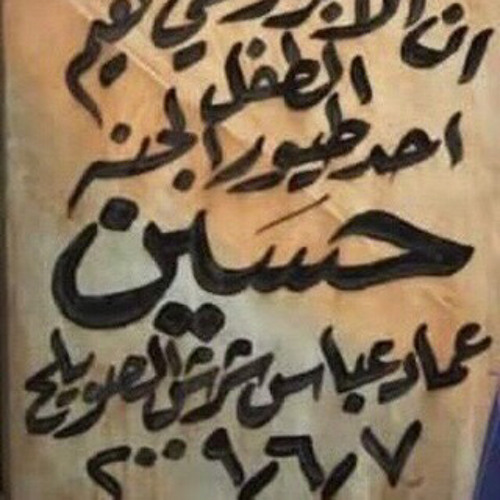 ان الأبرار لفي نعيم
الطفل
احد طيور الجنه
حسين
عماد عباس شرش الصويلح
٢٠٠٩/٦/٧